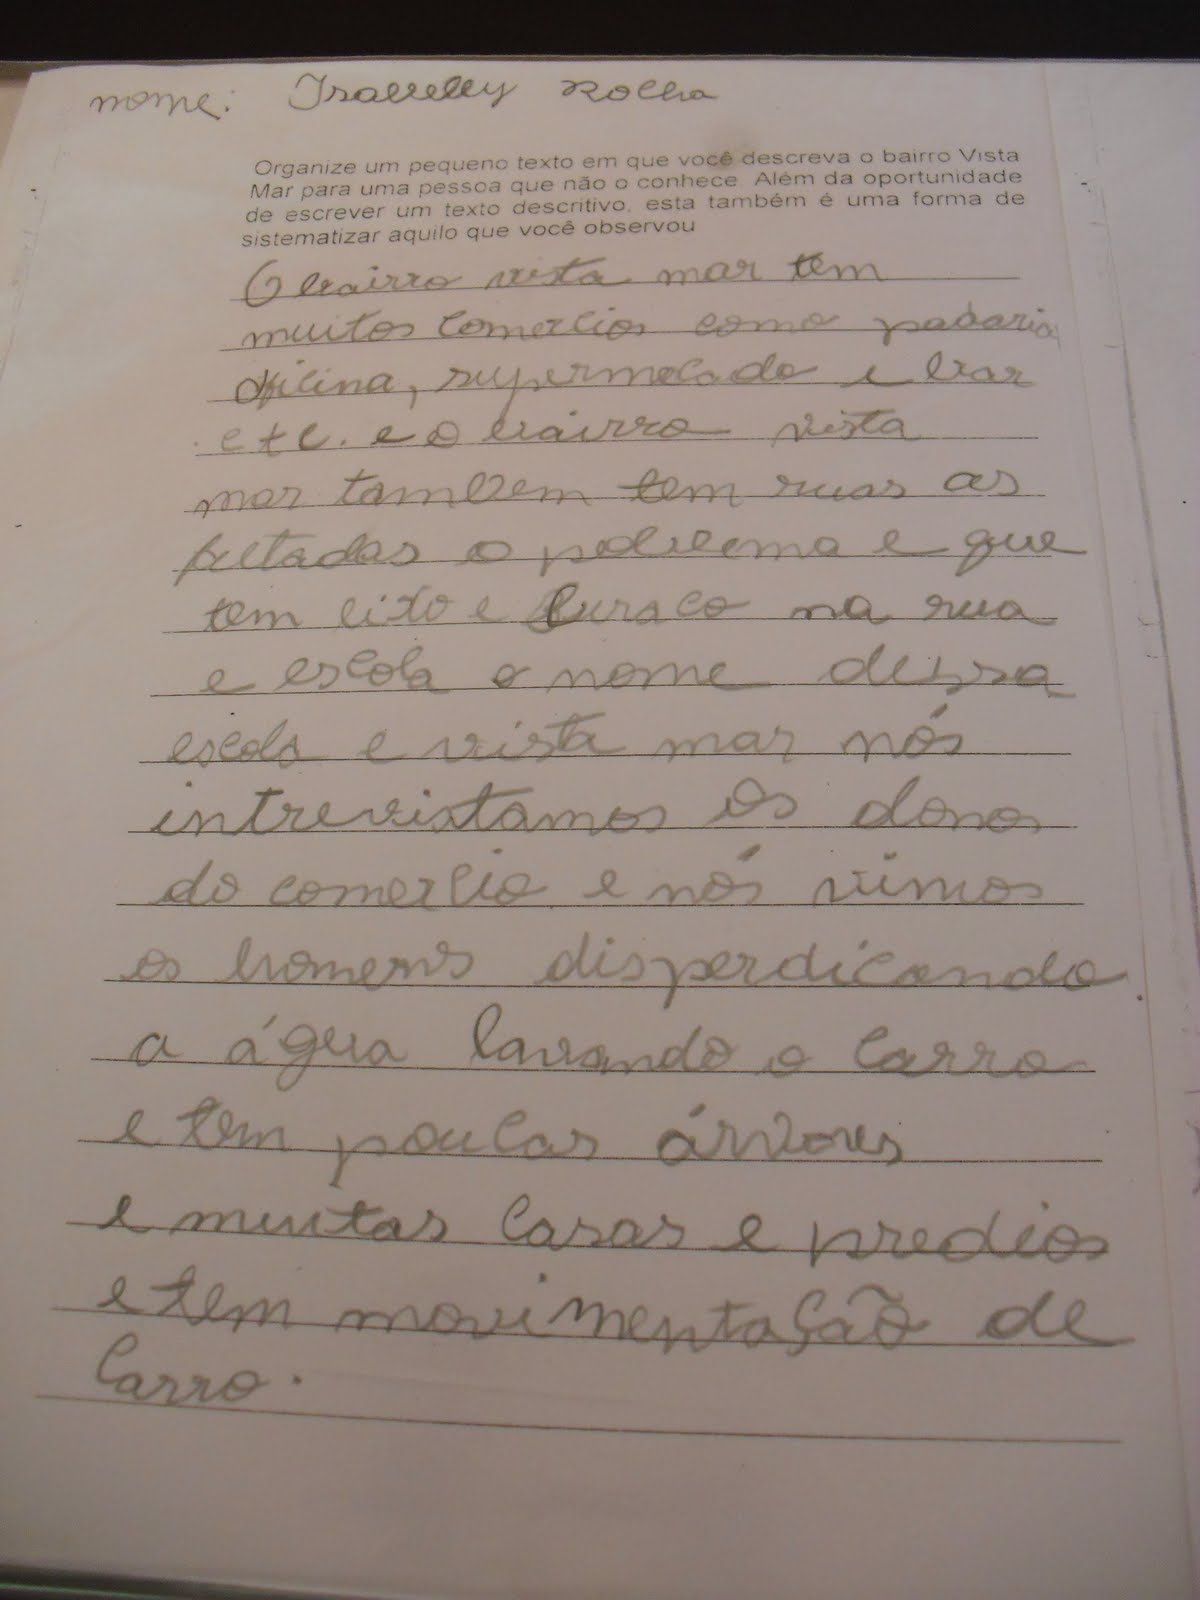 nome: Isabelly Rocha
Organize um pequeno texto em que você descreva o bairro Vista
Mar para uma pessoa que não o conhece. Além da oportunidade
de escrever um texto descritivo, esta também é uma forma de
sistematizar aquilo que você observou
O bairro vista mar tem
muitos comercios como padaria
oficina, supermecado e bar
etc. e o bairro vista
mar tambem tem ruas as
feltadas o poblema e que
tem lixo e buraco na rua
e escola o nome dessa
escola e vista mar nós
intrevistamos os donos
do comercio e nós vimos
os homens disperdicando
a água lavando o carro
e tem poucas árvores
e muitas casas e predios
e tem movimentação de
carro.